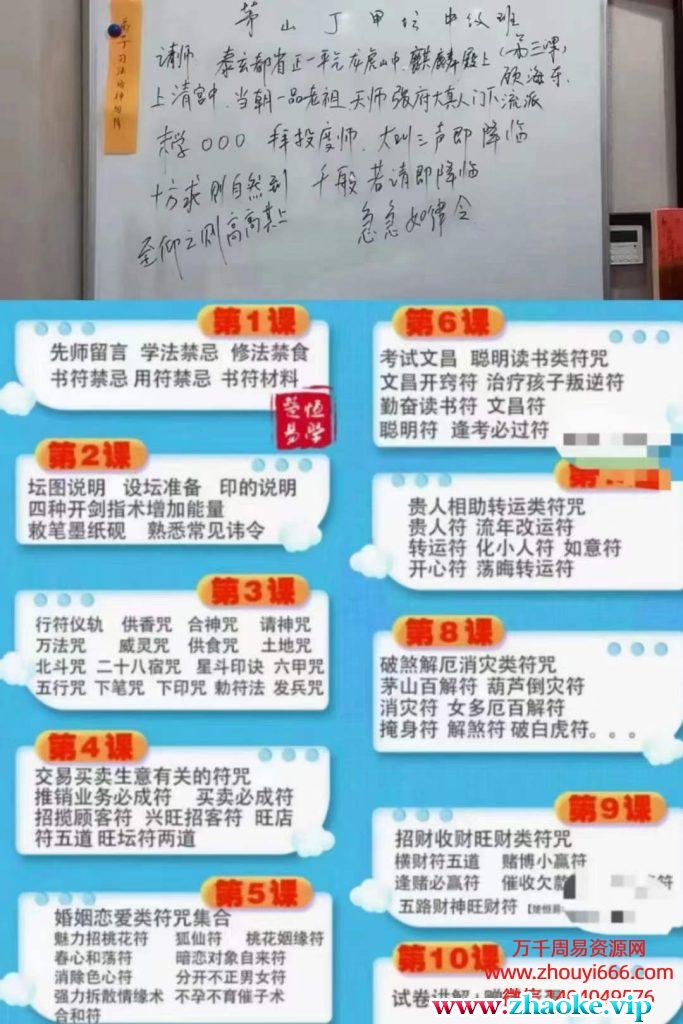 茅山丁甲坛中级班
(第三课)
顾海东
请师 泰玄都省正一平元龙虎山中麒麟殿上
上清宫中当朝一品老祖天师张府大真人门下流派
末学○○○ 拜投度师 大叫三声即降临
十方求则自然到 千般若请即降临
至仰之则高高其上 急急如律令
第1课
先师留言 学法禁忌 修法禁食
书符禁忌 用符禁忌 书符材料
楚恒易学
第2课
坛图说明 设坛准备 印的说明
四种开剑指术增加能量
敕笔墨纸砚 熟悉常见讳令
第3课
行符仪轨 供香咒 合神咒 请神咒
万法咒 威灵咒 供食咒 土地咒
北斗咒 二十八宿咒 星斗印诀 六甲咒
五行咒 下笔咒 下印咒 勅符法 发兵咒
第4课
交易买卖生意有关的符咒
推销业务必成符 买卖必成符
招揽顾客符 兴旺招客符 旺店
符五道 旺坛符两道
第5课
婚姻恋爱类符咒集合
魅力招桃花符 狐仙符 桃花姻缘符
春心和荡符 暗恋对象自来符
消除色心符 分开不正男女符
强力拆散情缘术 不孕不育催子术
合和符
第6课
考试文昌 聪明读书类符咒
文昌开窍符 治疗孩子叛逆符
勤奋读书符 文昌符
聪明符 逢考必过符
贵人相助转运类符咒
贵人符 流年改运符
转运符 化小人符 如意符
开心符 荡晦转运符
第8课
破煞解厄消灾类符咒
茅山百解符 葫芦倒灾符
消灾符 女多厄百解符
掩身符 解煞符 破白虎符。。。
第9课
招财收财旺财类符咒
横财符五道 赌博小赢符
逢赌必赢符 催收欠款 符
五路财神旺财符
第10课
试卷讲解
万千周易资源网
www.zhouyi666.com
www.zhaoke.vip